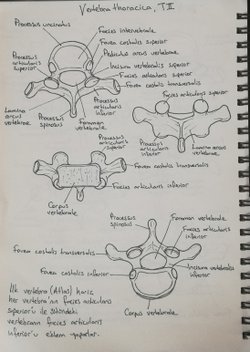 Vertebra thoracica, T II
Processus uncinatus
Facies intervertebrale
Fovea costalis superior
Pediculus arcus vertebrae
Processus
articularis
superior
Incisura vertebralis superior
Facies articularis superior
Fovea costalis transversalis
Lamina
arcus
vertebrae
Processus
spinosus
Processus
articularis
inferior
Foramen
vertebrale
Facies articularis superior
Processus
articularis
superior
Processus
spinosus
Processus
articularis
inferior
Lamina arcus
vertebrae
Fovea costalis transversalis
Facies articularis inferior
Corpus
vertebrale
Processus
spinosus
Foramen
vertebrale
Facies articularis
inferior
Fovea costalis transversalis
Fovea costalis inferior
Incisura vertebralis
inferior
Corpus vertebrale
İlk vertebra (Atlas) hariç
her vertebra'nın facies articularis
superior'u ile üstündeki
vertebranın facies articularis
inferior'u eklem yaparlar.